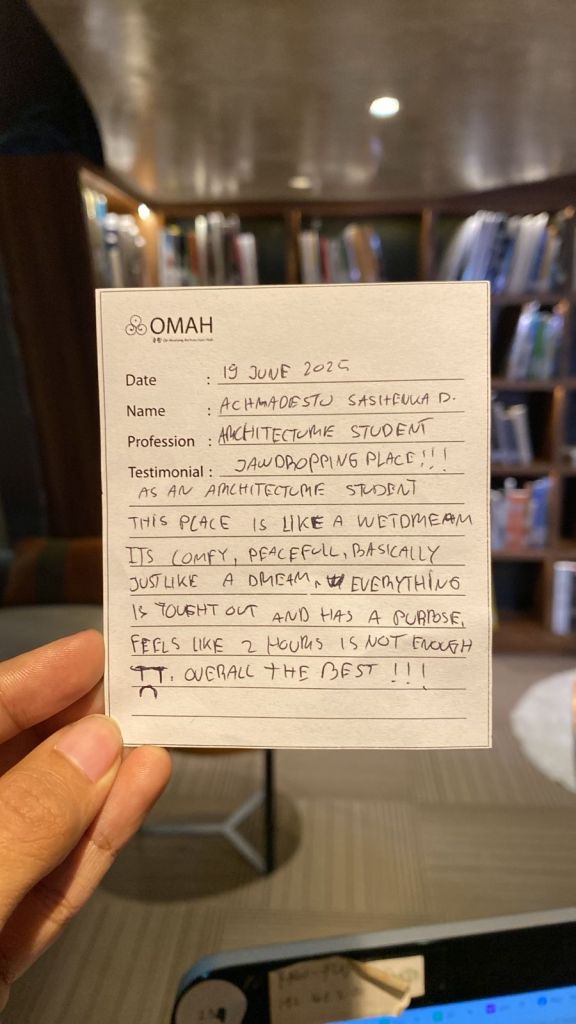 OMAH
Date : 19 JUNE 2025
Name : ACHMADESTU SASHENKA D.
Profession : ARCHITECTURE STUDENT
Testimonial : JAWDROPPING PLACE!!!
AS AN ARCHITECTURE STUDENT
THIS PLACE IS LIKE A WETDREAM
ITS COMFY, PEACEFULL, BASICALLY
JUST LIKE A DREAM, EVERYTHING
IS TOUGHT OUT AND HAS A PURPOSE,
FEELS LIKE 2 HOURS IS NOT ENOUGH
TT. OVERALL THE BEST !!!